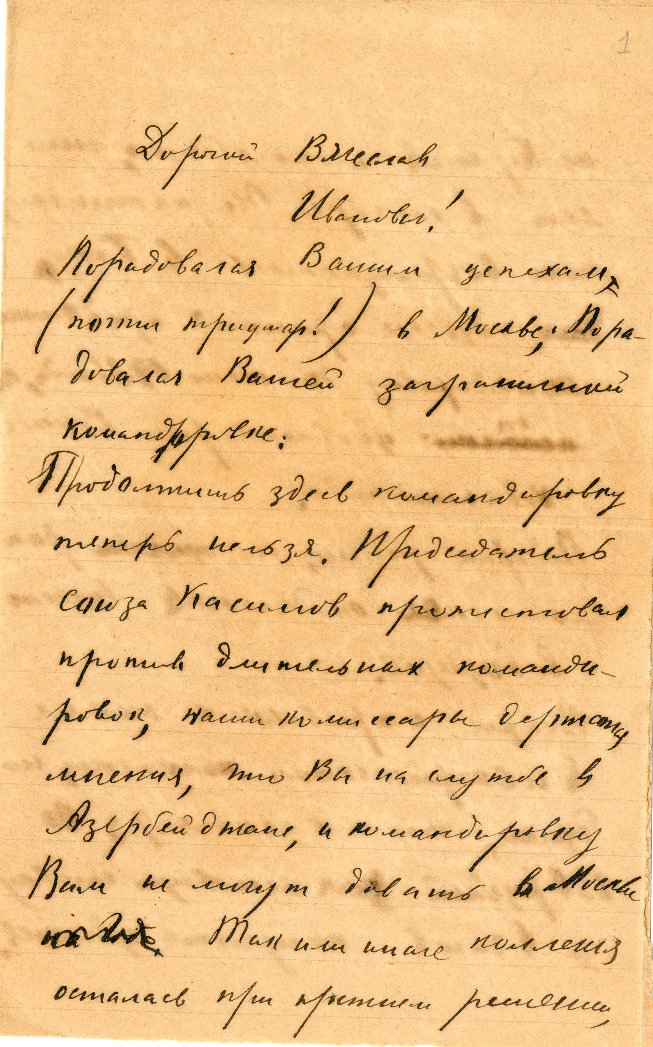 1
Дорогой Вячеслав
Иванович!
Порадовался Вашим успехам
(почти триумф!) в Москве. Пора-
довался Вашей заграничной
командировке.
Продолжить здесь командировку
теперь нельзя. Председатель
союза Касимов протестовал
против длительных команди-
ровок, наши комиссары держатся
мнения, что Вы на службе в
Азербейджане, и командировку
Вам не могут давать в Москве
Так или иначе коллегия
осталась при прежнем решении,